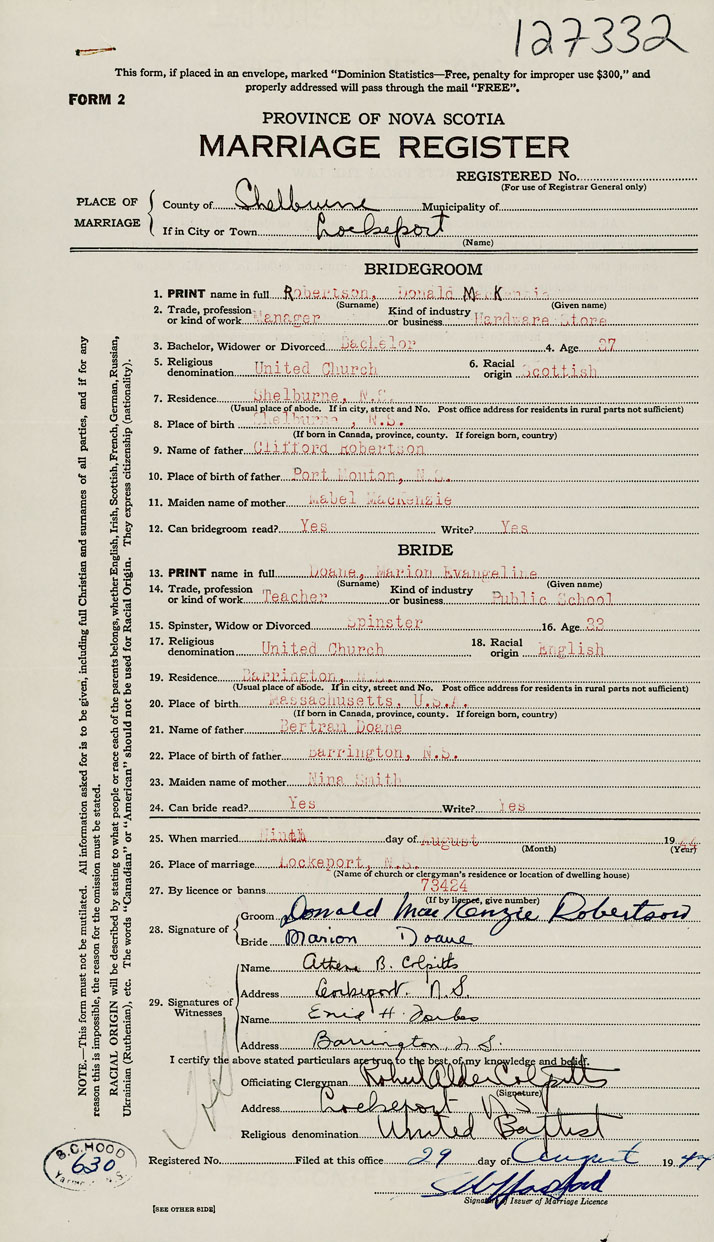 127332
This form, if placed in an envelope, marked “Dominion Statistics—Free, penalty for improper use $300,” and
properly addressed will pass through the mail “FREE”.
FORM 2
PROVINCE OF NOVA SCOTIA
MARRIAGE REGISTER
REGISTERED No.
(For use of Registrar General only)
PLACE OF MARRIAGE
County of Shelburne Municipality of
If in City or Town Lockeport
(Name)
BRIDEGROOM
1. PRINT name in full Robertson, Donald MacKenzie
(Surname) (Given name)
2. Trade, profession or kind of work Manager Kind of industry or business Hardware Store
3. Bachelor, Widower or Divorced Bachelor 4. Age 37
5. Religious denomination United Church 6. Racial origin Scottish
7. Residence Shelburne, N.S.
(Usual place of abode. If in city, street and No. Post office address for residents in rural parts not sufficient)
8. Place of birth Shelburne, N.S.
(If born in Canada, province, county. If foreign born, country)
9. Name of father Clifford Robertson
10. Place of birth of father Port Mouton, N.S.
11. Maiden name of mother Mabel MacKenzie
12. Can bridegroom read? Yes Write? Yes
BRIDE
13. PRINT name in full Doane, Marion Evangeline
(Surname) (Given name)
14. Trade, profession or kind of work Teacher Kind of industry or business Public School
15. Spinster, Widow or Divorced Spinster 16. Age 33
17. Religious denomination United Church 18. Racial origin English
19. Residence Barrington, N.S.
(Usual place of abode. If in city, street and No. Post office address for residents in rural parts not sufficient)
20. Place of birth Massachusetts, U.S.A.
(If born in Canada, province, county. If foreign born, country)
21. Name of father Bertram Doane
22. Place of birth of father Barrington, N.S.
23. Maiden name of mother Nina Smith
24. Can bride read? Yes Write? Yes
25. When married Ninth day of August 1944
(Month) (Year)
26. Place of marriage Lockeport, N.S.
(Name of church or clergyman's residence or location of dwelling house)
27. By licence or banns 73424
(If by licence, give number)
28. Signature of
Groom Donald MacKenzie Robertson
Bride Marion Doane
29. Signatures of Witnesses
Name B. Colpitts
Address Lockeport. N.S.
Name Enid H. Forbes
Address Barrington N.S.
I certify the above stated particulars are true to the best of my knowledge and belief.
Officiating Clergyman Robert Alder Colpitts
(Signature)
Address Lockeport NS
Religious denomination United Baptist
Registered No. Filed at this office 29 day of August 1944
Signature of Issuer of Marriage Licence
[SEE OTHER SIDE]
S.C. HOOD
630
Yarmouth N.S.
NOTE.—This form must not be mutilated. All information asked for is to be given, including full Christian and surnames of all parties, and if for any
reason this is impossible, the reason for the omission must be stated.
RACIAL ORIGIN will be described by stating to what people or race each of the parents belongs, whether English, Irish, Scottish, French, German, Russian,
Ukrainian (Ruthenian), etc. The words “Canadian” or “American” should not be used for Racial Origin. They express citizenship (nationality).